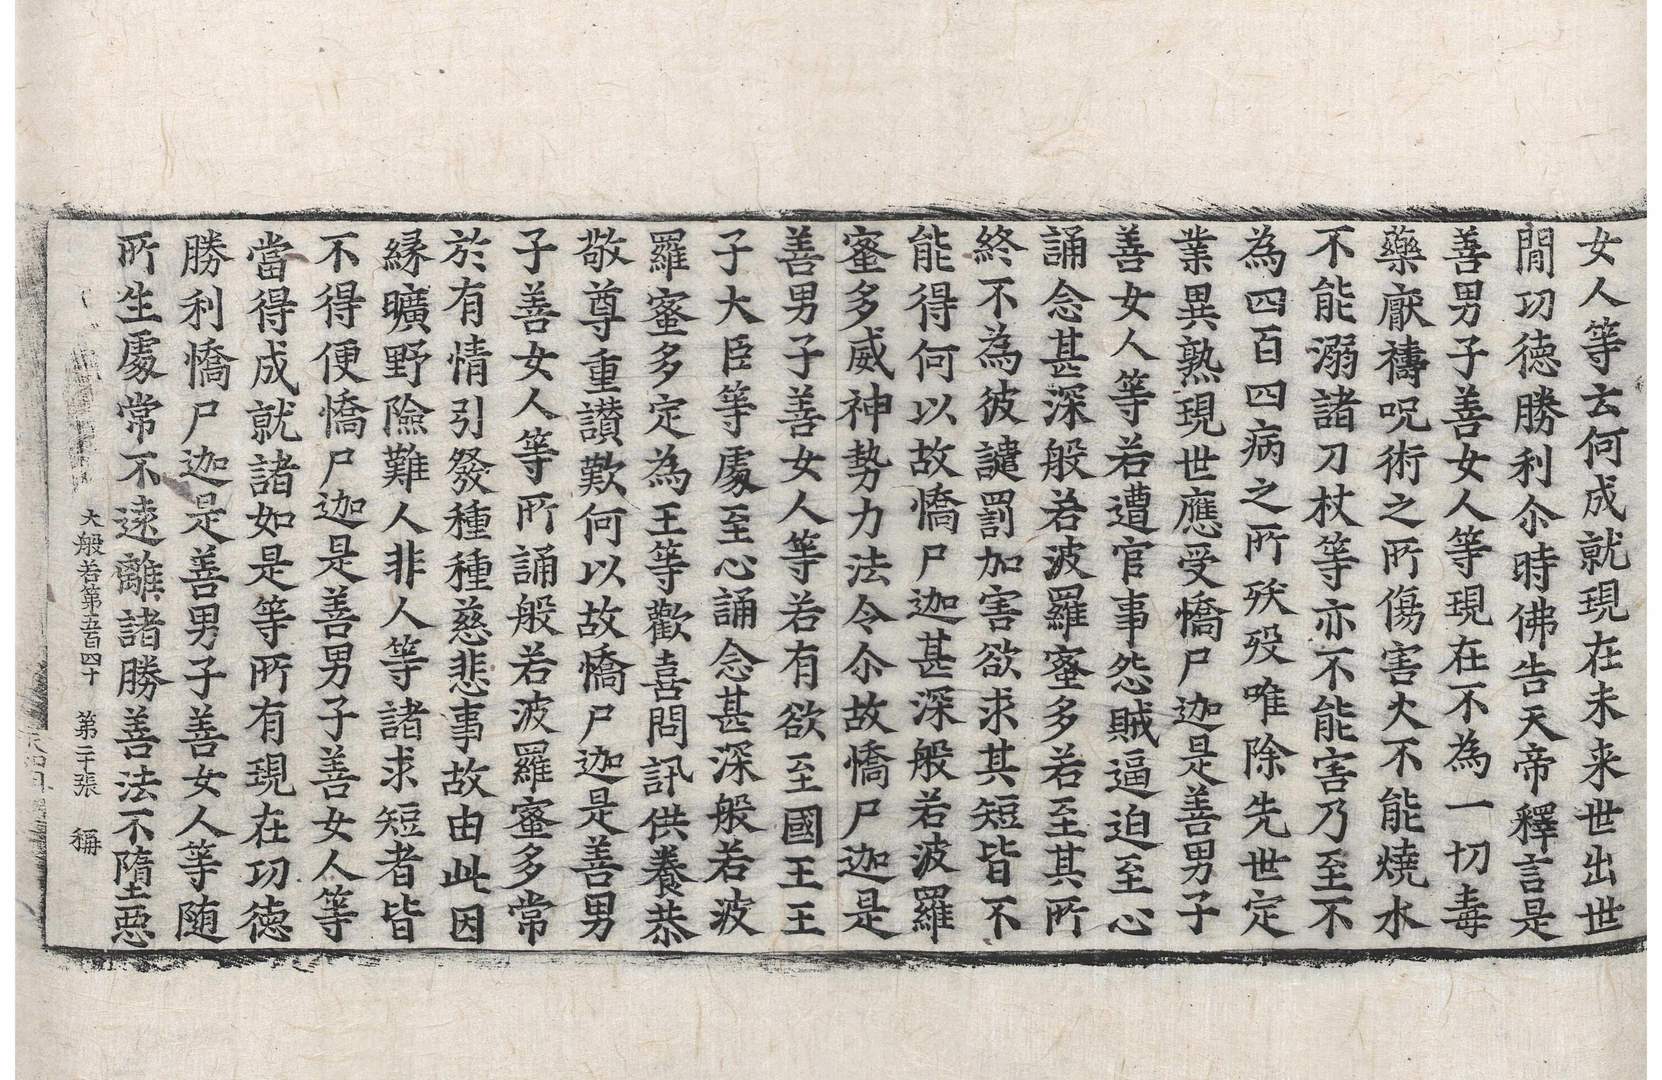 女人等云何成就現在未来世出世
閒功德勝利尒時佛告天帝釋言是
善男子善女人等現在不為一切毒
藥厭禱呪術之所傷害火不能燒水
不能溺諸刀杖等亦不能害乃至不
為四百四病之所殀歿唯除先世定
業異熟現世應受憍尸迦是善男子
善女人等若遭官事怨賊逼迫至心
誦念甚深般若波羅蜜多若至其所
終不為彼譴罰加害欲求其短皆不
能得何以故憍尸迦甚深般若波羅
蜜多威神勢力法令尒故憍尸迦是
善男子善女人等若有欲至國王王
子大臣等處至心誦念甚深般若波
羅蜜多定為王等歡喜問訊供養恭
敬尊重讃歎何以故憍尸迦是善男
子善女人等所誦般若波羅蜜多常
於有情引發種種慈悲事故由此因
縁曠野險難人非人等諸求短者皆
不得便憍尸迦是善男子善女人等
當得成就諸如是等所有現在功德
勝利憍尸迦是善男子善女人等随
所生處常不遠離諸勝善法不墮惡
大般若第五百四十 第二十張 稱